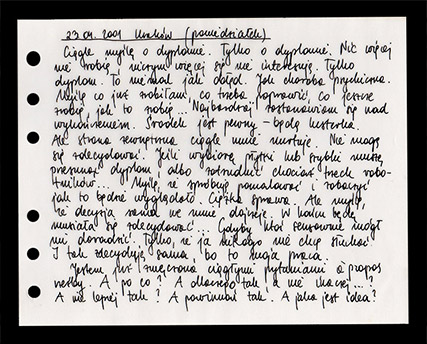 23.04.2001 Kraków (poniedziałek)
Ciągle myślę o dyplomie. Tylko o dyplomie. Nic więcej
nie robię niczym więcej się nie interesuję. Tylko
dyplom. To niemal jak obłęd. Jak choroba psychiczna.
Myślę co już zrobiłam, co trzeba poprawić, co jeszcze
zrobię, jak to zrobię... Najbardziej zastanawiam się nad
wykończeniem. Środek jest pewny – będą lusterka.
Ale strona zewnętrzna ciągle mnie nurtuje. Nie mogę
się zdecydować. Jeśli wybiorę płytki lub szybki muszę
przesunąć dyplom albo zatrudnić chociaż trzech robo-
tników... Myślę, że spróbuję pomalować i zobaczyć
jak to będzie wyglądało. Ciężka sprawa. Ale myślę,
że decyzja sama we mnie dojrzeje. W końcu będę
musiała się zdecydować... Gdyby ktoś sensownie mógł
mi doradzić. Tylko, że ja nikogo nie chcę słuchać
I tak zdecyduję sama, bo to moja praca.
Jestem już zmęczona ciągłymi pytaniami à propos
rzeźby. A po co? A dlaczego tak a nie inaczej...?
A nie lepiej tak? A powinnaś tak. A jaka jest idea?